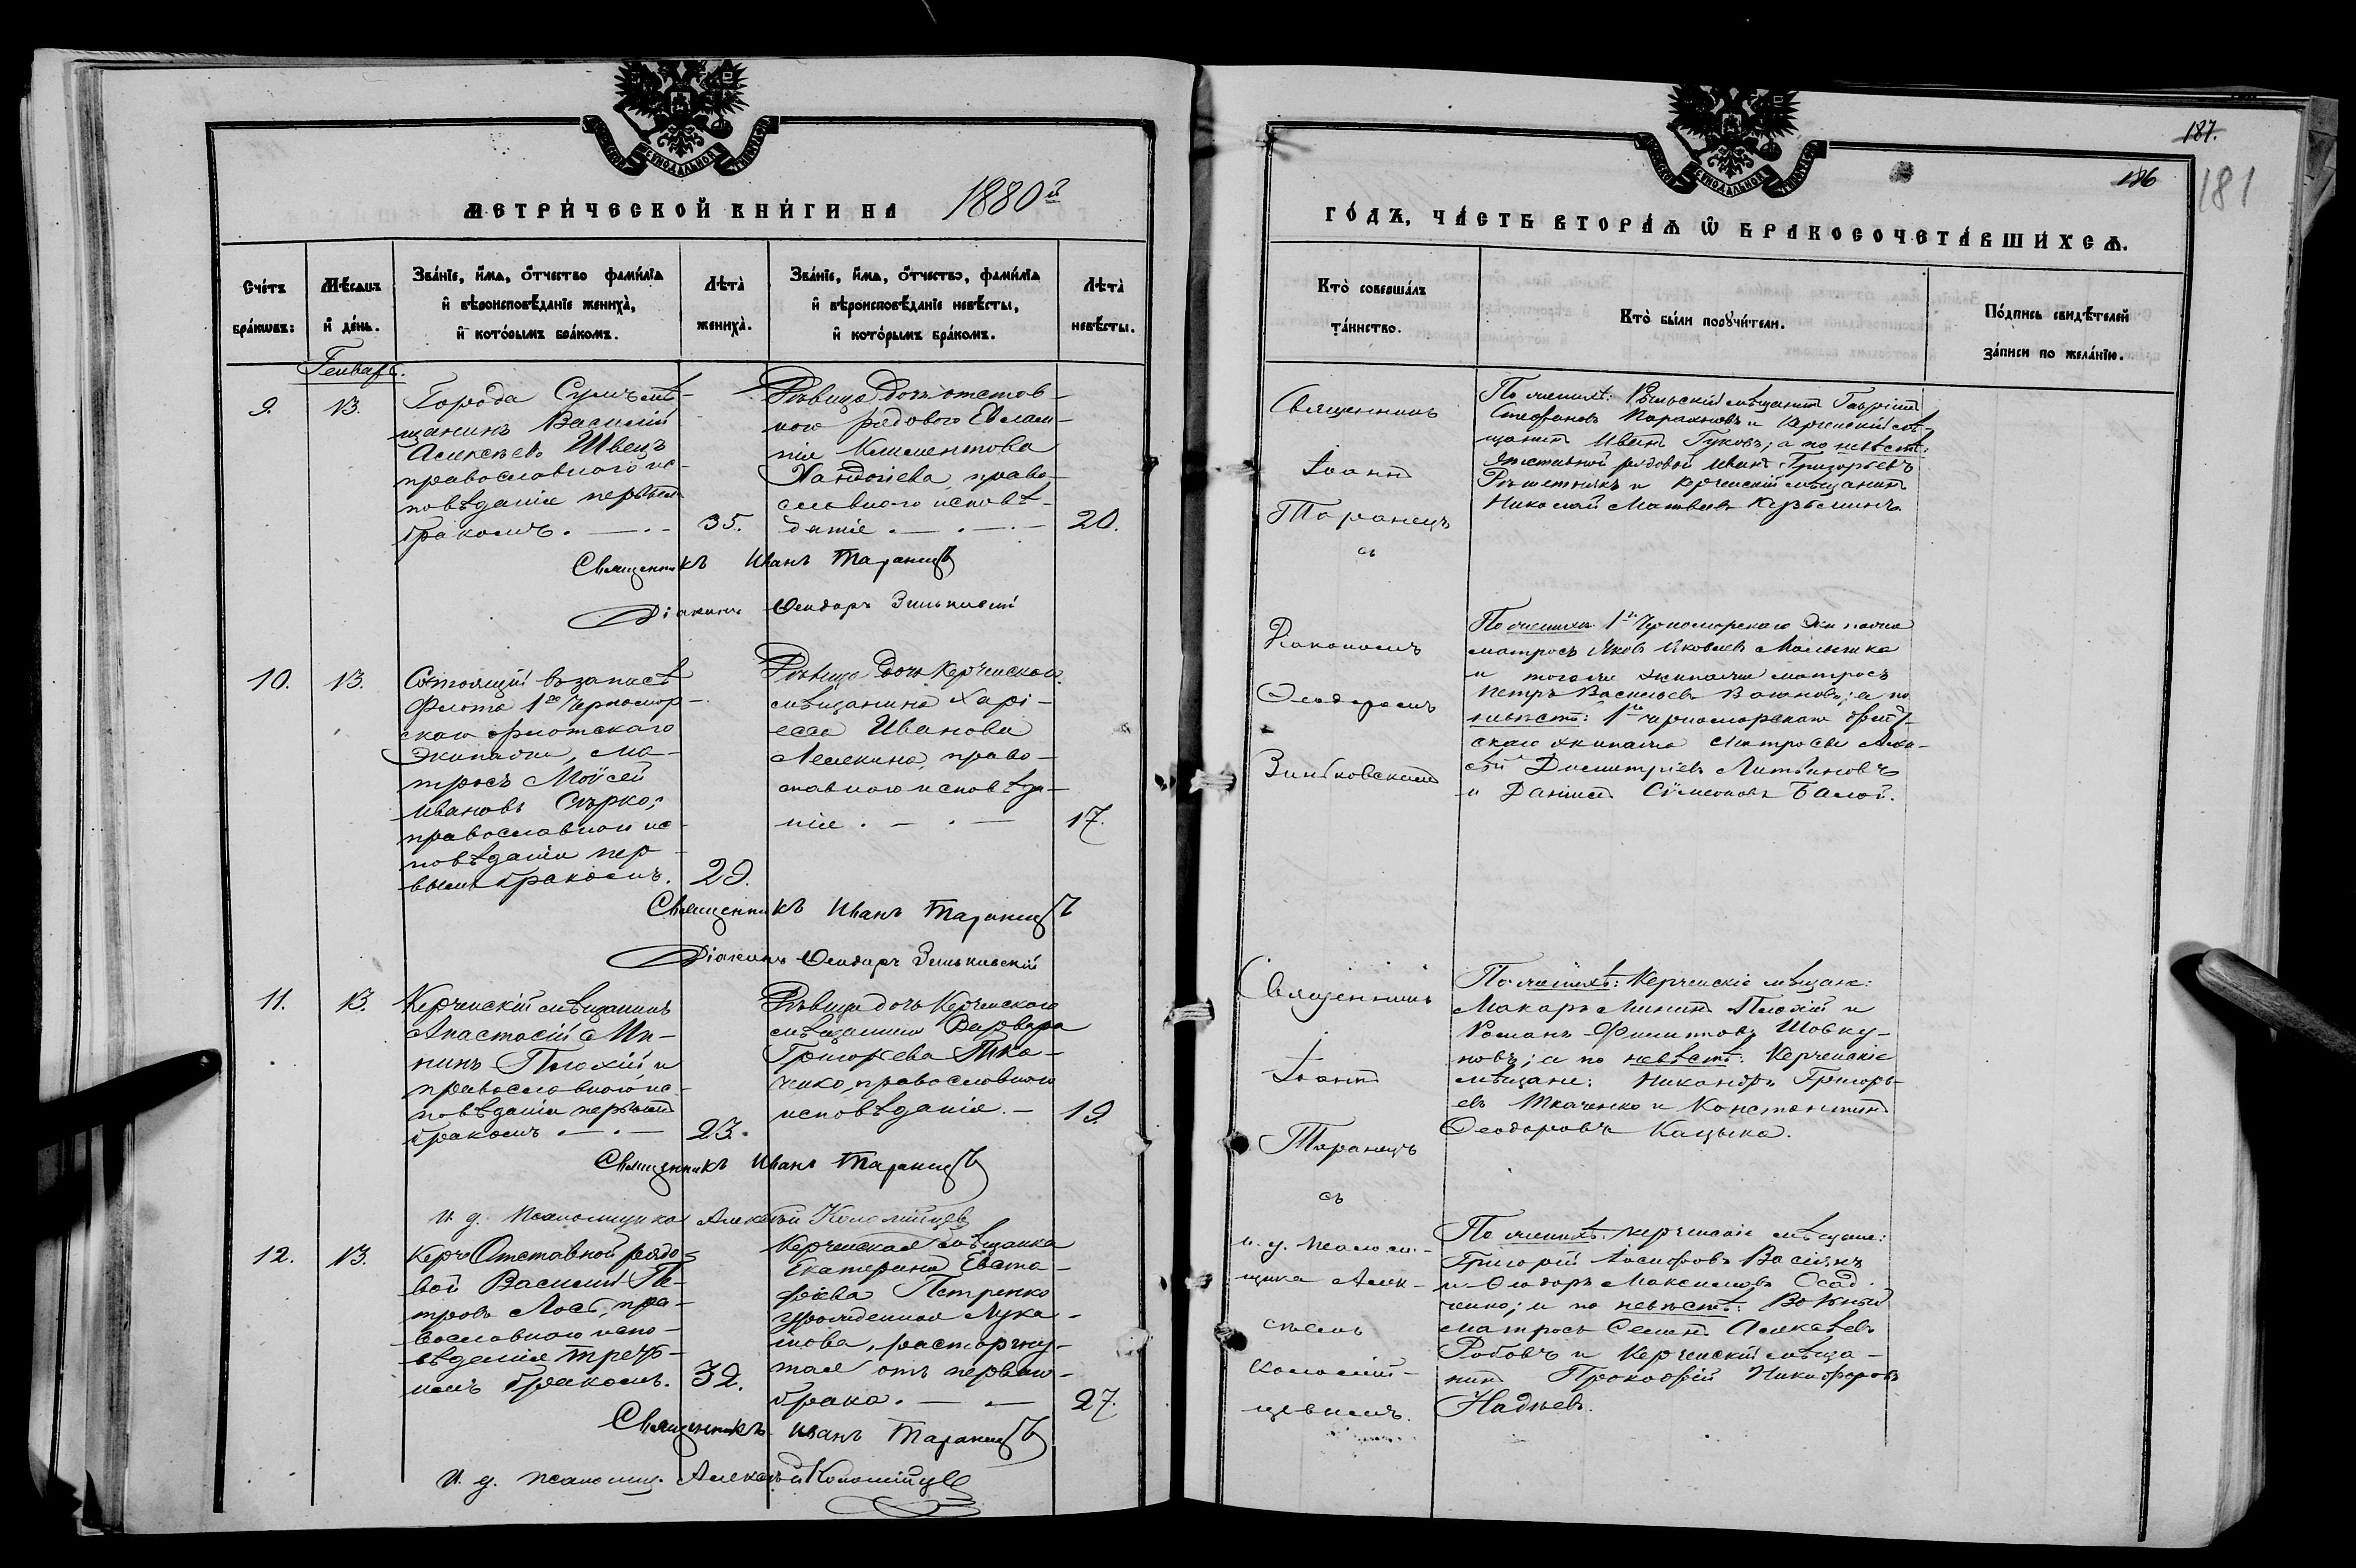 МЕТРИ́ЧЕСКОЙ КНИ́ГИ НА 1880й
Сче́тъ бра́ковъ:
Мѣ́сяцъ и҆ де́нь.
Зва́нїе, и҆́мѧ, ѻ҆́тчество фамѝлїа
и҆ вѣроисповѣ́данїе жениха̀,
и҆ кото́рымъ бра́комъ.
Лѣта̀
жениха̀.
Зва́нїе, и҆́мѧ, ѻ҆́тчество, фамѝлїа
и҆ вѣроисповѣ́данїе невѣ́сты,
и҆ кото́рымъ бра́комъ.
Лѣта̀
невѣ́сты.
Генваря.
9.
13.
Города Сумъ мѣ-
щанинъ Василій
Алексѣевъ Швецъ
православнаго ис-
повѣданія первымъ
бракомъ.
35.
Дѣвица дочь отстав-
наго рядового Евлам-
пія Климентова
православнаго исповѣ-
данія
20.
Священникъ Иванъ Таранецъ
Діаконъ Ѳеодоръ Зиньковскій
10.
13.
Состоящій въ запасѣ
Флота 1го Черномор-
скаго флотскаго
Экипажа, ма-
тросъ Моѵсей
Ивановъ Сѣрко;
православнаго ис-
повѣданія пер-
вымъ бракомъ.
29.
Дѣвица дочь Керченскаго
мѣщанина Харі-
Иванова
право-
славнаго исповѣда-
нія.
17.
Священникъ Иванъ Таранецъ
Діаконъ Ѳеодоръ Зиньковскій
11.
13.
Керченскій мѣщанинъ
Анастасій Ми-
нинъ Плохій
православнаго ис-
повѣданія первымъ
бракомъ
23.
Дѣвица дочь Керченскаго
мѣщанина Варвара
Григорьева Тка-
ченко, православнаго
исповѣданія.
19
Священникъ Иванъ Таранецъ
и. д. псаломщика Алексѣй Коломійцевъ
12.
13.
Отставной рядо-
вой Василій Пе-
тровъ пра-
вославнаго испо-
вѣданія треть-
имъ бракомъ.
32.
Керченская мѣщанка
Екатерина Евста-
фіева Петренко
урожденная Лука-
шова, расторгну-
тая отъ перваго
брака.
27.
Священникъ Иванъ Таранецъ
и. д. псаломщ. Алексѣй Коломійцевъ
187.
186
181
ГО́ДЪ, ЧА́СТЬ ВТОРА́Ѧ Ѡ҆ БРАКОСОЧЕТА́ВШИХСѦ.
Кто̀ соверша́лъ
та́инство.
Кто̀ бы́ли порꙋчи́тели.
По́дпись свидѣ́телей
за́писи по жела́нїю.
Священникъ
Іоаннъ
Таранецъ
съ
По женихѣ: мѣщанинъ Гавріилъ
Стефановъ и Керченскій мѣ-
щанинъ Иванъ Гуковъ; а по невѣстѣ:
Отставной рядовой Иванъ Григорьевъ
Рѣшетнякъ и Керченскій мѣщанинъ
Николай Матвѣевъ Кузьминъ.
Діакономъ
Ѳеодоромъ
Зиньковскимъ
По женихѣ 1го Черноморскаго Экипажа
матросъ Яковъ Яковлевъ
и того же экипажа матросъ
Петръ Васильевъ а по
невѣстѣ: 1го черноморскаго флот-
скаго экипажа матросы Алек-
сѣй Димитріевъ Литвиновъ
и Даніилъ Сѵмеоновъ
Священникъ
Іоаннъ
Таранецъ
съ
По женихѣ: Керченскіе мѣщане:
Макаръ Мининъ Плохій и
Романъ Филиповъ Шовку-
новъ; а по невѣстѣ: Керченскіе
мѣщане: Никаноръ Григорь-
евъ Ткаченко и Константинъ
Ѳеодоровъ Кацыка.
и. д. псалом-
щика Алек-
сѣемъ
Коломій-
цевымъ.
По женихѣ: керченскіе мѣщане:
Григорій Іосифовъ
и Ѳеодоръ Максимовъ Осад-
ченко; и по невѣстѣ:
матросъ Семенъ Алексѣевъ
и Керченскій мѣща-
нинъ Прокофій Никифоровъ